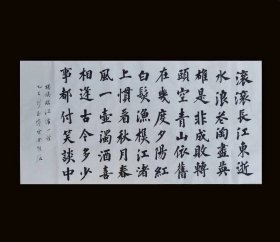 滾滾長江東逝
水浪花淘盡英
雄是非成敗轉
頭空青山依舊
在幾度夕陽紅
白髮漁樵江渚
上慣看秋月春
風一壺濁酒喜
相逢古今多少
事都付笑談中
楊慎臨江仙一首